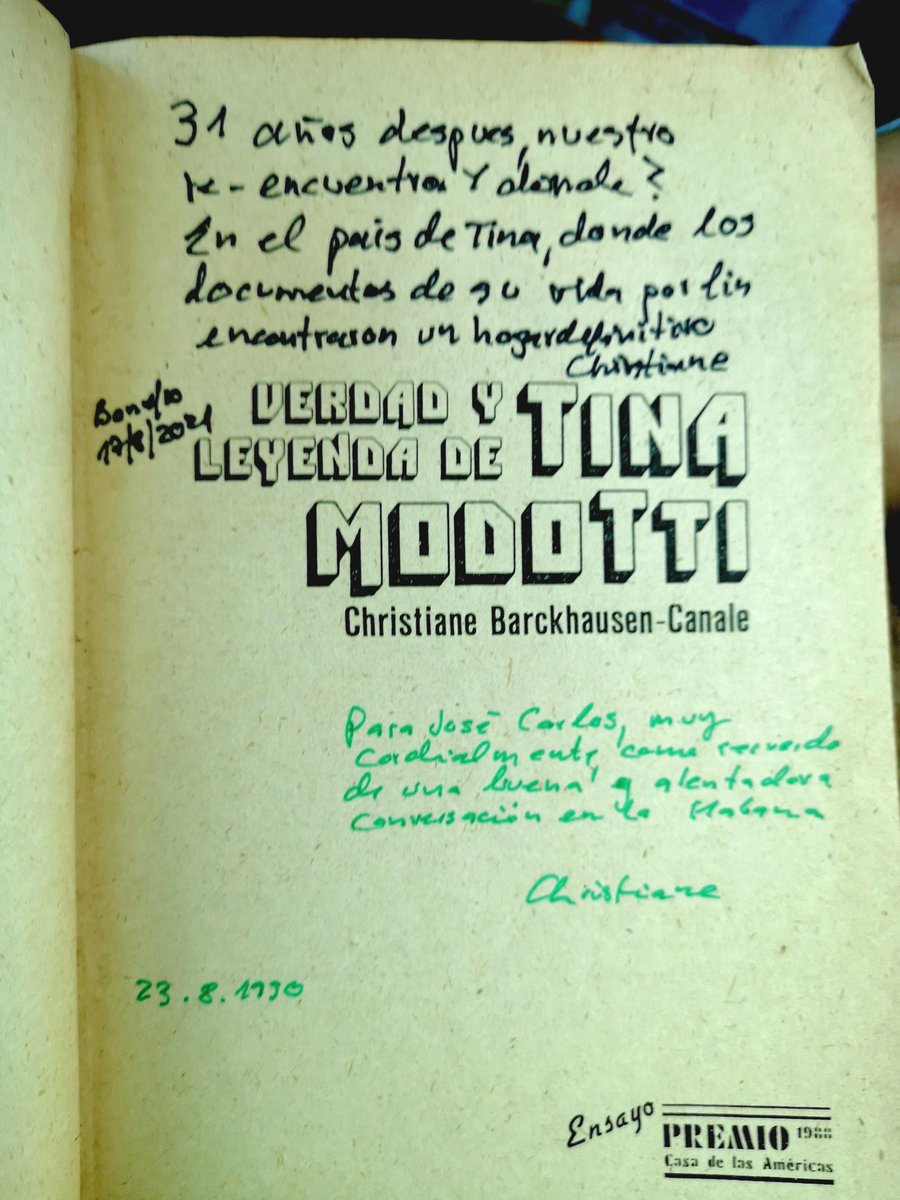 31 años despues, nuestro
re-encuentro! Y dónde?
En el pais de Tina, donde los
documentos de su vida por fin
encontraron un hogar definitivo
Christiane
17/8/2021
VERDAD Y
LEYENDA DE TINA
MODOTTI
Christiane Barckhausen-Canale
Para José Carlos, muy
cordialmente, como recuerdo
de una buena y alentadora
conversación en la Habana
Christiane
23.8.1990
Ensayo
PREMIO 1988
Casa de las Américas